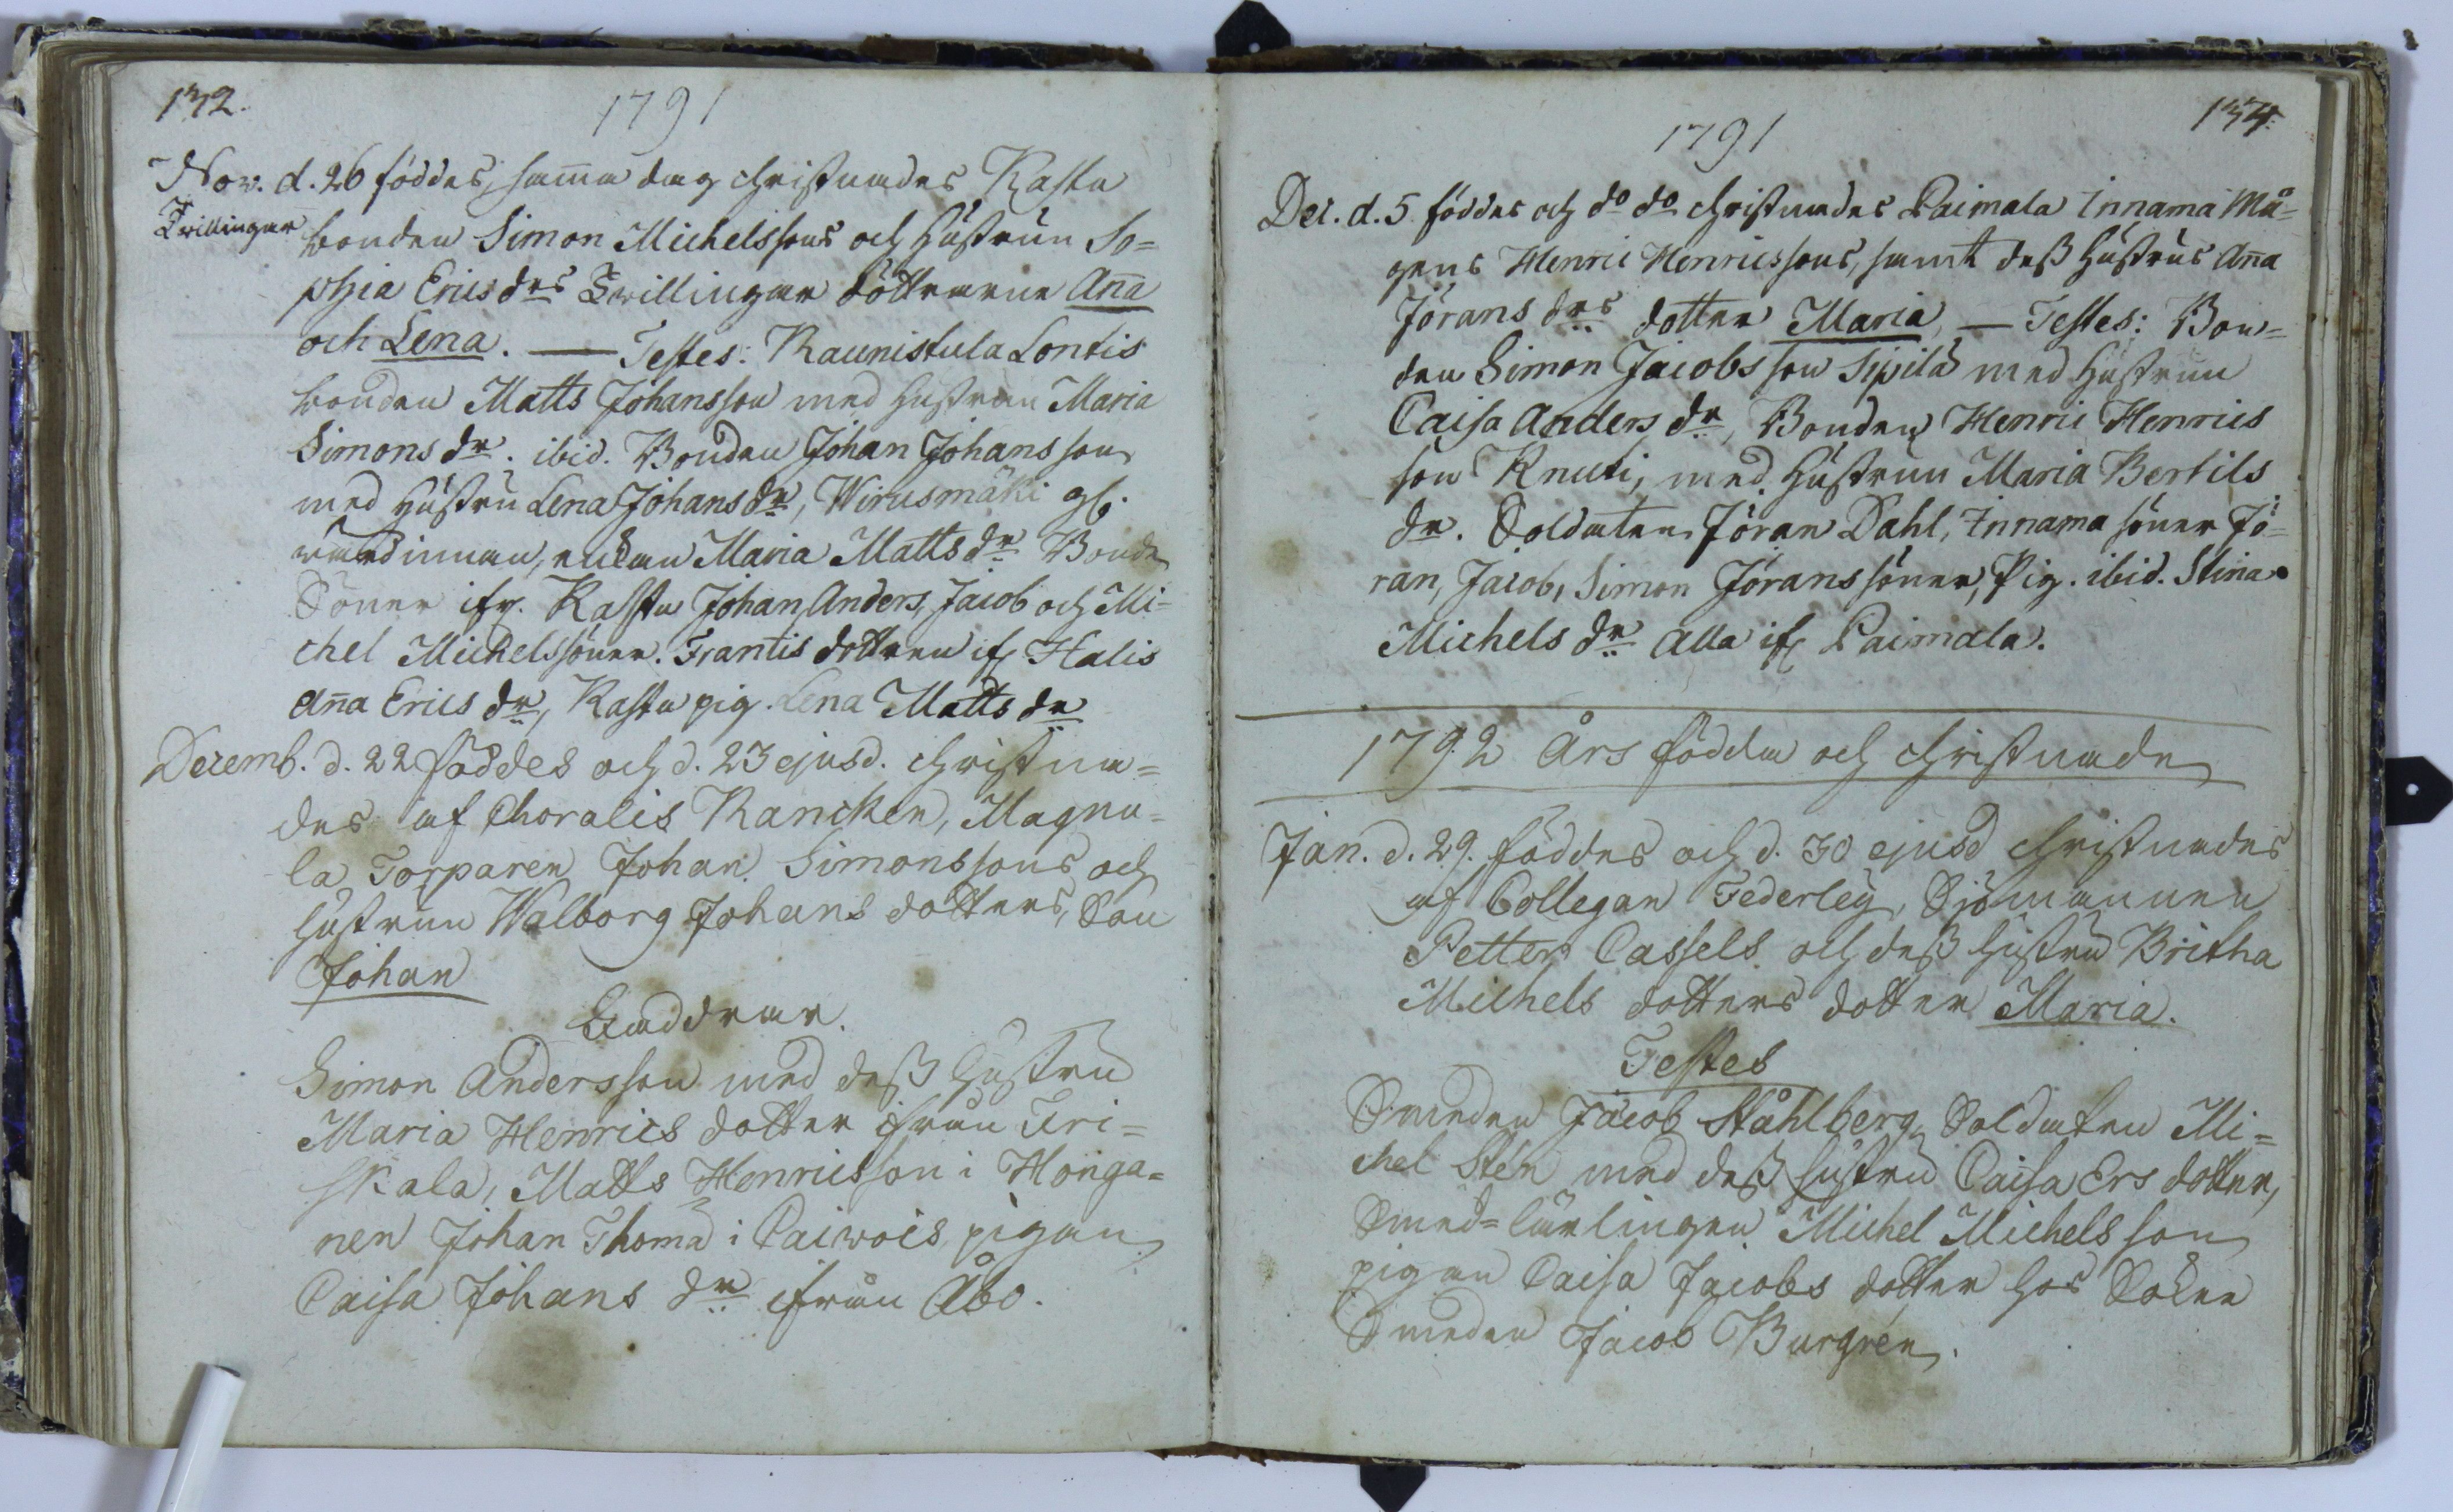 132.
1791
Nov. d. 26 föddes, samma dag christnades Kastu
Tvillingar
bonden Simon Michelssons och Hustrun So=
phia Erics drs Tvillingar döttrarne Anna
och Lena. — Testes: Raunistula Lontis
bonden Matts Johansson med hustrun Maria
Simons dr. ibid. Bonden Johan Johansson
med hustru Lena Johans dr, Wirusmäki gl.
värdinnan, enkan Maria Matts dr Bonde
Söner ifr. Kastu Johan, Anders, Jacob och Mi=
chel Michelssöner. Frantis dottren ifr Halis
Anna Erics dr, Kastu pig. Lena Matts dr
Decemb. d. 22 föddes och d. 23 ejusd. christna=
des af Choralis Rancken, Magnu=
la Torparen Johan Simonssons och
hustrun Walborg Johans dotters, Son
Johan
Faddrar.
Simon Andersson med dess hustru
Maria Henrics dotter ifrån Tri=
skala, Matts Henricsson i Honga=
nen Johan Thoma i Paiwois, pigan
Caisa Johans dr ifrån Åbo.
134.
1791
Dec. d. 5 föddes och do do christnades Paimala Innama Må=
gens Henric Henricssons, samt dess hustrus Anna
Jörans drs dotter Maria, — Testes: Bon=
den Simon Jacobsson Sipilä med hustrun
Caisa Anders dr, Bonden Henric Henrics
son Knuti, med hustrun Maria Bertils
dr. Soldaten Jöran Dahl, Innama söner Jö=
ran, Jacob, Simon Jöranssöner, Pig. ibid. Stina
Michels dr Alla ifr Paimala.
1792 Års födda och christnade
Jan. d. 29. föddes och d. 30 ejusd christnades
af Collegan Federleÿ, Sjömannen
Petter Cassels och dess hustru Britha
Michels dotters dotter Maria.
Testes
Smeden Jacob Ståhlberg, Soldaten Mi=
chel Stén med dess hustru Caisa Ers dotter,
Smed=lärlingen Michel Michelsson
pigan Caisa Jacobs dotter hos Sokne
Smeden Jacob Burgrén.